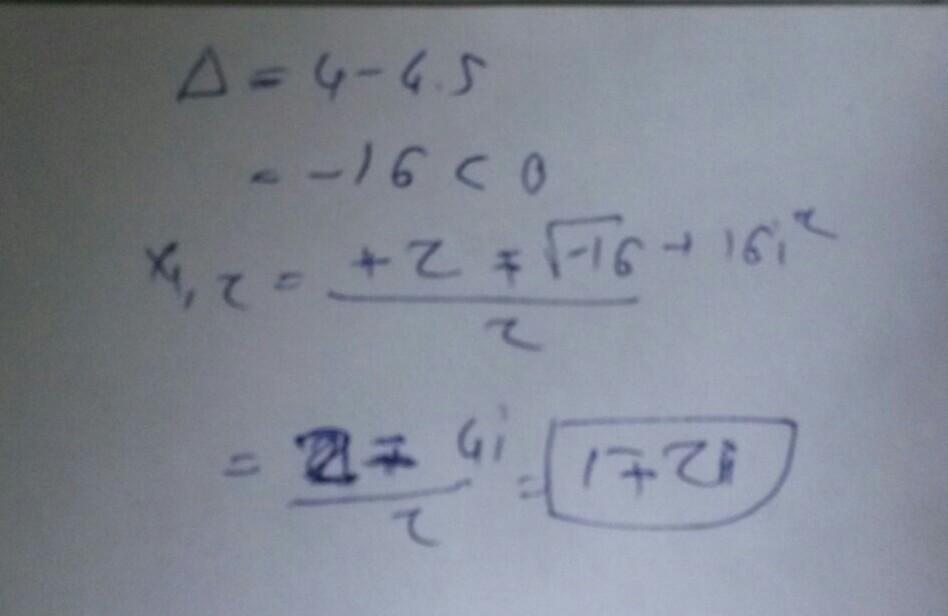 Δ = 4 - 4.5
= -16 < 0
x₁,₂ = (+2 ∓ √-16 → 16i²) / 2
= (2 ∓ 4i) / 2 = 1 ∓ 2i